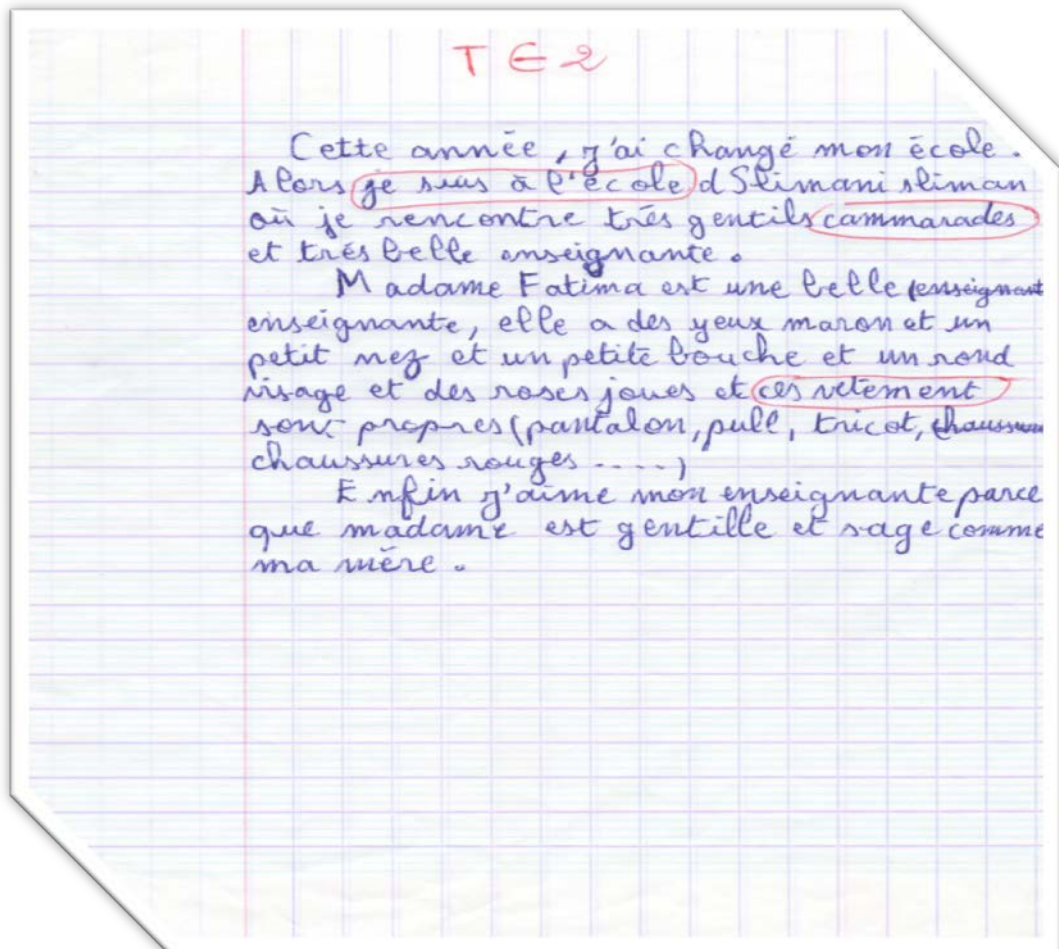 T E 2
Cette année, j'ai changé mon école.
Alors je suis à l'école d Slimani sliman
où je rencontre trés gentils cammarades
et trés belle enseignante.
Madame Fatima est une belle enseignant
enseignante, elle a des yeux maron et un
petit nez et un petite bouche et un rond
visage et des roses joues et ces vetement
sont propres (pantalon, pull, tricot, chaussure
chaussures rouges .....)
Enfin j'aime mon enseignante parce
que madame est gentille et sage comme
ma mére.